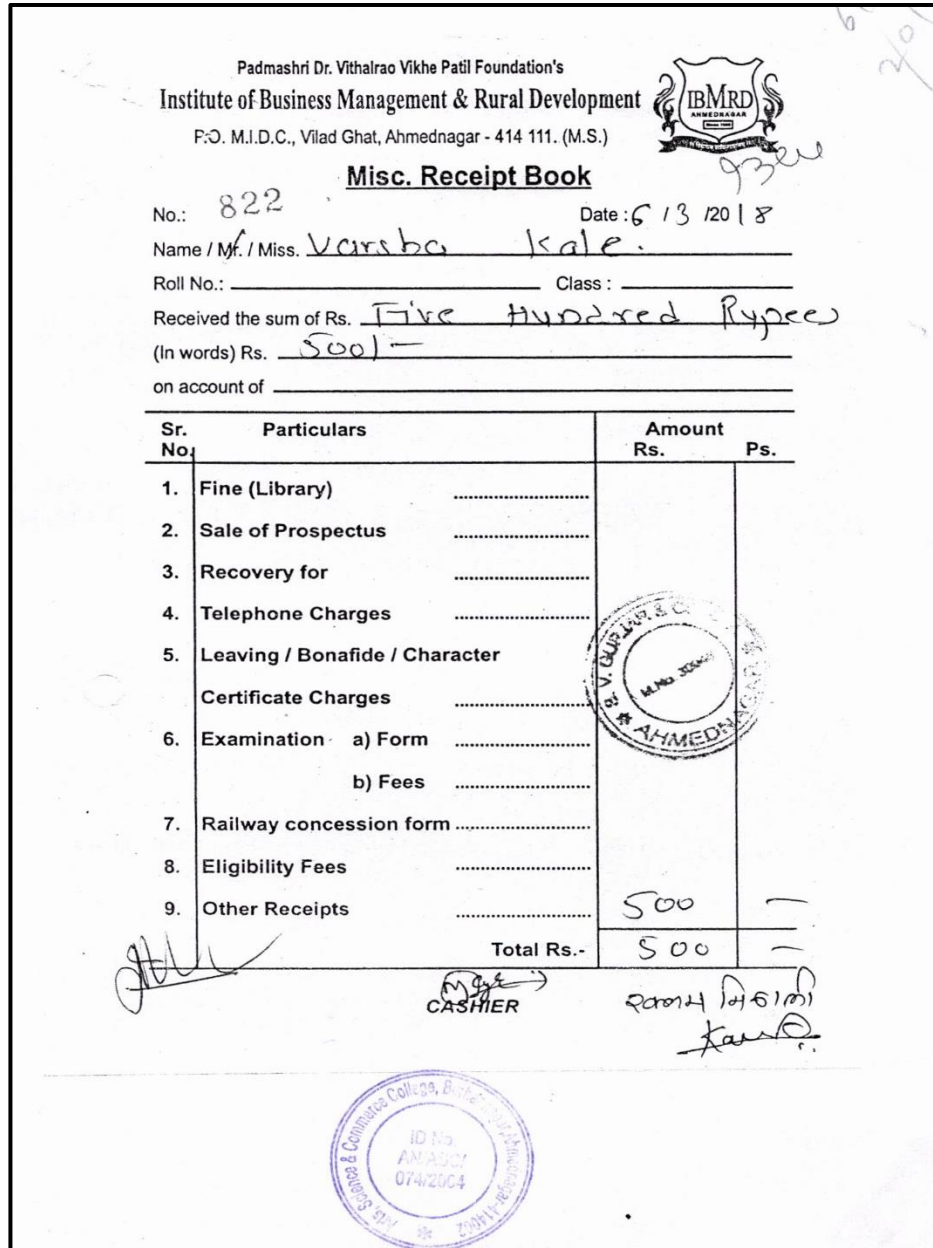 Padmashri Dr. Vithalrao Vikhe Patil Foundation's
Institute of Business Management & Rural Development
P.O. M.I.D.C., Vilad Ghat, Ahmednagar - 414 111. (M.S.)
IBMRD
AHMEDNAGAR
Misc. Receipt Book
No.: 822 Date : 6 / 3 /20 18
Name / Mr. / Miss. Varsha Kale.
Roll No.: Class :
Received the sum of Rs. Five Hundred Rupees
(In words) Rs. 500/-
on account of
Sr. No. Particulars Amount
Rs. Ps.
1. Fine (Library) ....................
2. Sale of Prospectus ....................
3. Recovery for ....................
4. Telephone Charges ....................
5. Leaving / Bonafide / Character
Certificate Charges ....................
6. Examination a) Form ....................
b) Fees ....................
7. Railway concession form ....................
8. Eligibility Fees ....................
9. Other Receipts .................... 500 —
Total Rs.- 500 —
B. V. GURJAR & C
M.No.
AHMEDNAGAR
CASHIER
रक्कम मिळाली
Arts, Science & Commerce College,
ID No.
AN/ASC/
074/2004